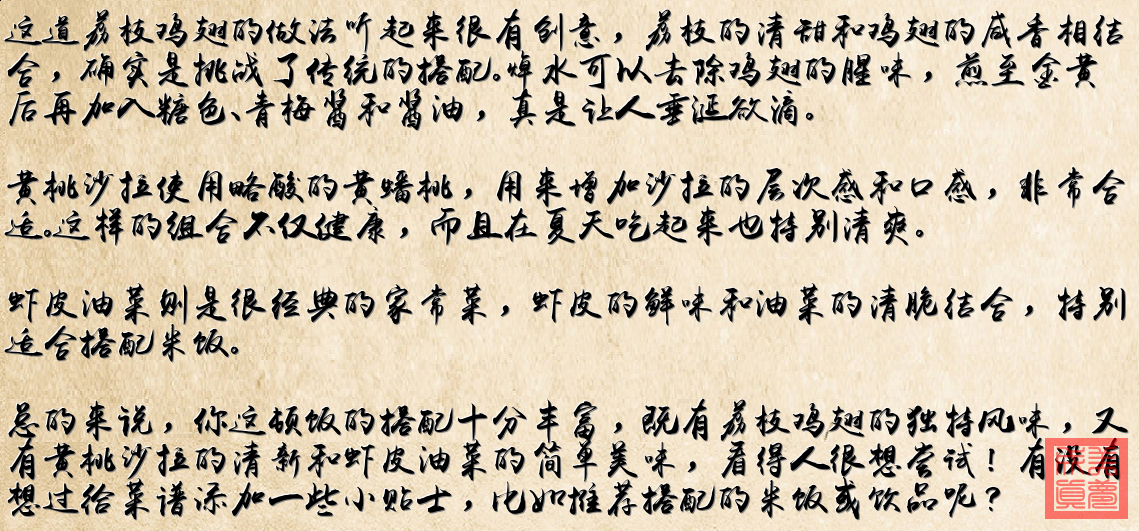 这道荔枝鸡翅的做法听起来很有创意，荔枝的清甜和鸡翅的咸香相结
合，确实是挑战了传统的搭配。焯水可以去除鸡翅的腥味，煎至金黄
后再加入糖色、青梅酱和酱油，真是让人垂涎欲滴。
黄桃沙拉使用略酸的黄蟠桃，用来增加沙拉的层次感和口感，非常合
适。这样的组合不仅健康，而且在夏天吃起来也特别清爽。
虾皮油菜则是很经典的家常菜，虾皮的鲜味和油菜的清脆结合，特别
适合搭配米饭。
总的来说，你这顿饭的搭配十分丰富，既有荔枝鸡翅的独特风味，又
有黄桃沙拉的清新和虾皮油菜的简单美味，看得人很想尝试！有没有
想过给菜谱添加一些小贴士，比如推荐搭配的米饭或饮品呢？